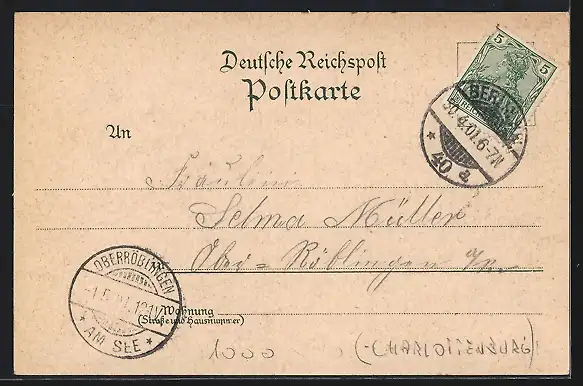 Deutsche Reichspost
Postkarte
5
5
BERLIN
30.4.01.6-7N
* 40 a
An
Fräulein
Selma Müller
Ober=Röblingen
OBERRÖBLINGEN
AM SEE
Wohnung
(Straße und Hausnummer)
1000
(-CHARLOTTENBURG)